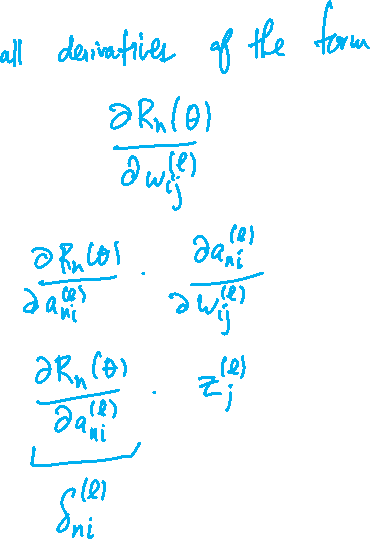 all derivatives of the form
∂Rₙ(θ) / ∂w_{ij}^{(ℓ)}
∂Rₙ(θ) / ∂a_{ni}^{(ℓ)} · ∂a_{ni}^{(ℓ)} / ∂w_{ij}^{(ℓ)}
∂Rₙ(θ) / ∂a_{ni}^{(ℓ)} · z_j^{(ℓ)}
δ_{ni}^{(ℓ)}